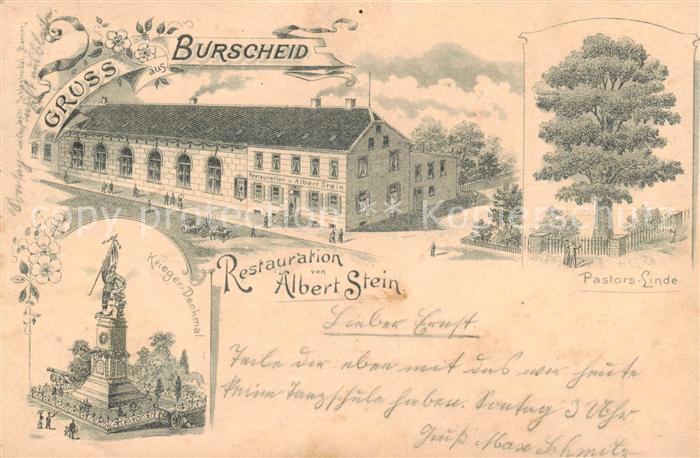 GRUSS
aus
BURSCHEID
Restauration v. Albert Stein
Restauration
von
Albert Stein.
Pastors-Linde
Krieger-Denkmal
copy protection ** Kopierschutz
Lieber Ernst
Teile dir eben mit das wir heute
keine Tanzschule haben. Sontag 3 Uhr
Gruß Max Schmitz